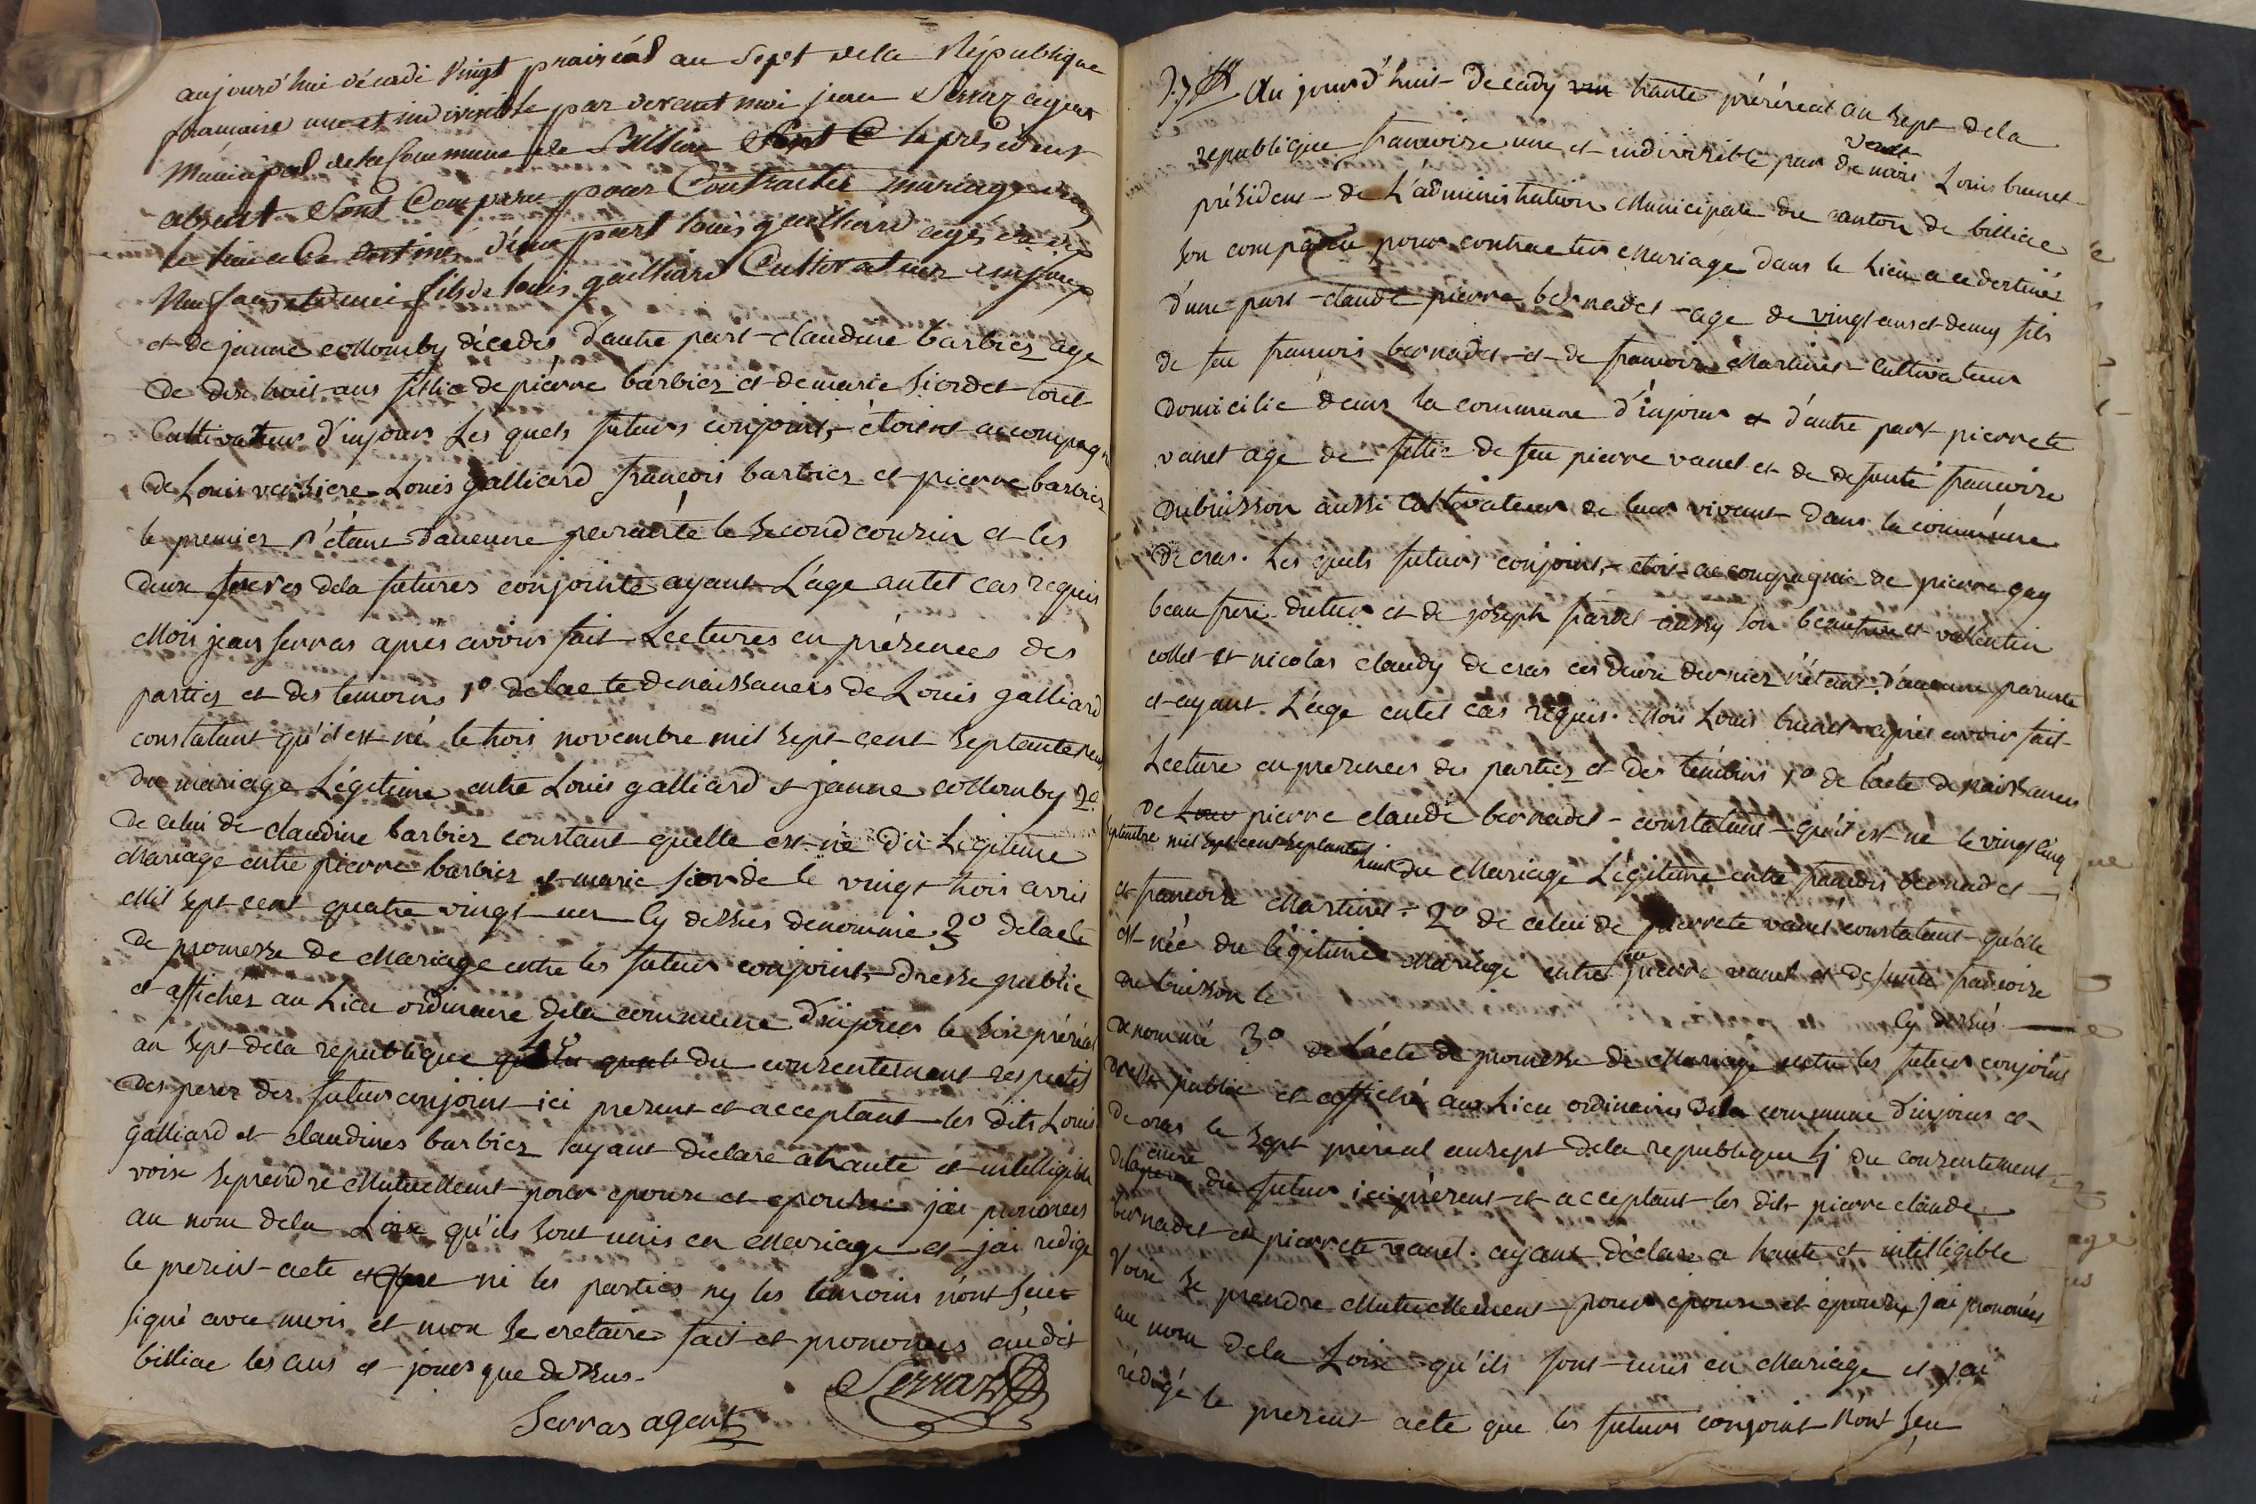 aujourd'hui décadi vingt prairéal an Sept dela République
francaise une et indivisible par devant moi jean Serraz agent
Municipal de la Commune de Billiac Sont C le président
absent Sont Comparu pour Contracter mariage dans
le lieu a Ce destiné d'une part louis gailliard agés de dix
Neuf ans et demi fils de louis gailliard Cultivateur
et de janne collomby décedés d'autre part claudine barbier age
de dix huit ans fillie de piérre barbier et de marie siordet tout
Cultivateur d'injoux Les quels futurs conjoint, étoient accompagné
de Louis verssiere Louis galliard francois barbier et pierre barbier
le premier n'étant d'aucune perranté le second couzin et les
deux freres dela futures conjointe ayant L'age antel cas requis
Moi jean serras apres avoir fait Lectures en présences des
parties et des temoins 1º delacte denaissances de Louis galliard
constatant qu'il est né le trois novembre mil sept cent septante neuf
du mariage Légitime entre Louis galliard et janne collomby 2º
de celui de claudine barbier constant quelle est né du Légitime
Mariage entre pierre barbier et marie siorde le vingt trois avril
Mil sept cent quatre vingt un cy dessus denommé 3º delacte
de promesse de Mariage entre les futurs conjoint, dresse public
et affichés au Lieu ordinaire dela commune d'injoux le trois préréal
an sept dela republique du conzentement respectif
des perez des futur conjoint ici prezent et acceptant les dits Louis
galliard et claudines barbier ayant declaré a haute et intelligible
voix se prendre Mutuellement pour epoux et epouse jai prononces
au nom dela Loix qu'ils sont unis en Mariage et jai redigé
le prezent acte et que ni les parties ny les temoins n'ont seut
signé avec mois et mon secretaire fait et prononcés audit
billiac les ans et jour que dessus.
Serras agent Serraz
Au jourd'huit Decady vin trante préréreal an sept dela
republique francoise une et indivizible par devant moi Louis brunet
président de L'administration Municipale du canton de billiac
son comparu pour contracter Mariage dans le Lieu a ce destinés
d'une part claude pierre bernadet age de vingt ans et demy fils
de feu francois bernadet et de francoise Martinet Cultivateur
domicilié dans la commune d'injoux et d'autre part pierrete
vanet age de fillie de feu pierre vanet et de defunte francoize
dubuisson aussi Cultivateur de leur vivant dans la commune
de cras. Les quels futurs conjoint, étoit accompagnié de pierre gay
beau frere dutur et de joseph fardet aussy son beau frere et vallentin
collet et nicolas claudy de cras ces deux dernier n'étant d'aucune parente
et ayant L'age entel cas requis. Moi Louis brunet aprés avoir fait
Lecture en prezences des parties et des témoins 1º de lacte de naissances
de Louis pierre claude bernadet constatant qu'il est né le vingt cinq
septembre mil sept cent septante huit du Mariage Légitime entre francois bernadet
et francoise Martinet 2º de celui de pierrete vanet constatant qu'elle
est née du légitime Mariage entre feu pierre vanet et defunte francoize
du buisson le cy dessus
denommé 3º de lácte de promesse de Mariage entre les futur conjoint
dressé public et affiché aux Lieu ordinaires dela commune d'injoux et
de cras le sept préreal an sept dela republique du conzentement
dela mere du futur ici prezent et acceptant les dits pierre claude
bernadet et pierrete vanet. ayant déclaré a haute et intelligible
Voix se prendre Mutuellement pour epoux et epouze jai prononcés
au nom dela Loix qu'ils sont unis en Mariage et jai
rédigé le prezent acte que les futurs conjoint n'ont seu